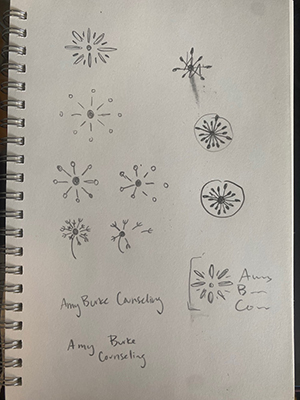 Amy Burke Counseling
Amy Burke
Counseling
Amy
B
Co